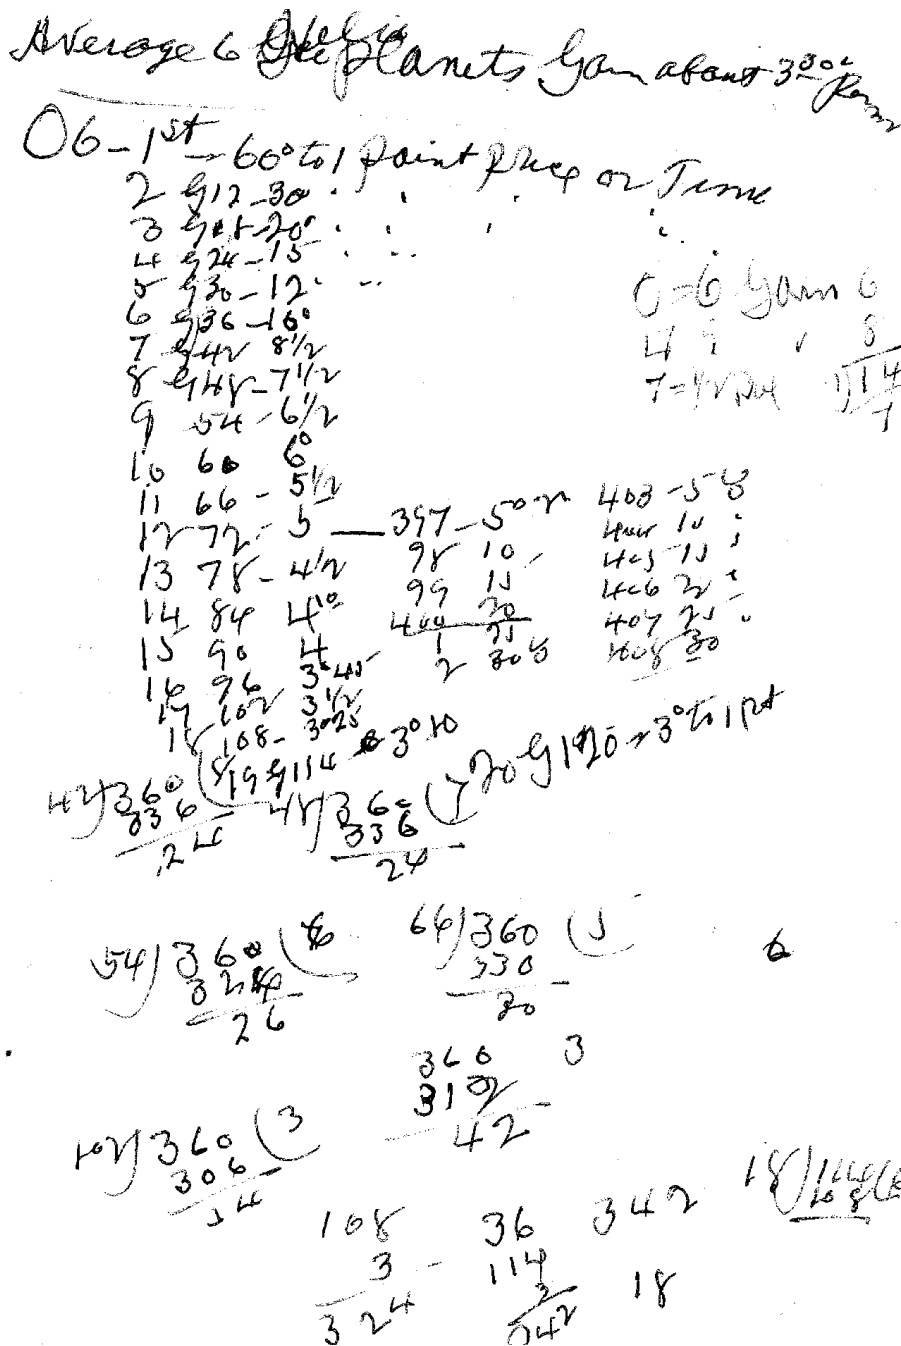 Average 6 Helio Planets Gain about 3
06 - 1st - 60° to 1 Point Price or Time
2 G 12 - 30 " " "
3 G 18 - 20° " " "
4 G 24 - 15 " "
5 G 30 - 12 " "
6 G 36 - 10°
7 G 42 8 1/2
8 G 48 - 7 1/2
9 54 - 6 1/2
10 60 6°
11 66 - 5 1/2
12 72 - 5 — 397 - 5° 403 - 5
13 78 - 4 1/2 98 10 404 10 "
14 84 4 99 15 405 15 "
15 90 4 400 20 406 20 "
16 96 3° 45 1 25 407 25 "
17 102 3 1/2 2 30 408 30
18 108 - 3° 25
19 G 114 3° 10
20 G 120 - 3° to 1 pt
0 = 6 Gain 6
4 " " 8
7 = 42 14
7
42)360(8
336
24
48)360(7
336
24
54)360(6
324
26
66)360(5
330
30
6
360 3
318
42
102)360(3
306
54
108
3
324
36
114
3
342
342
18
18)114(6
108